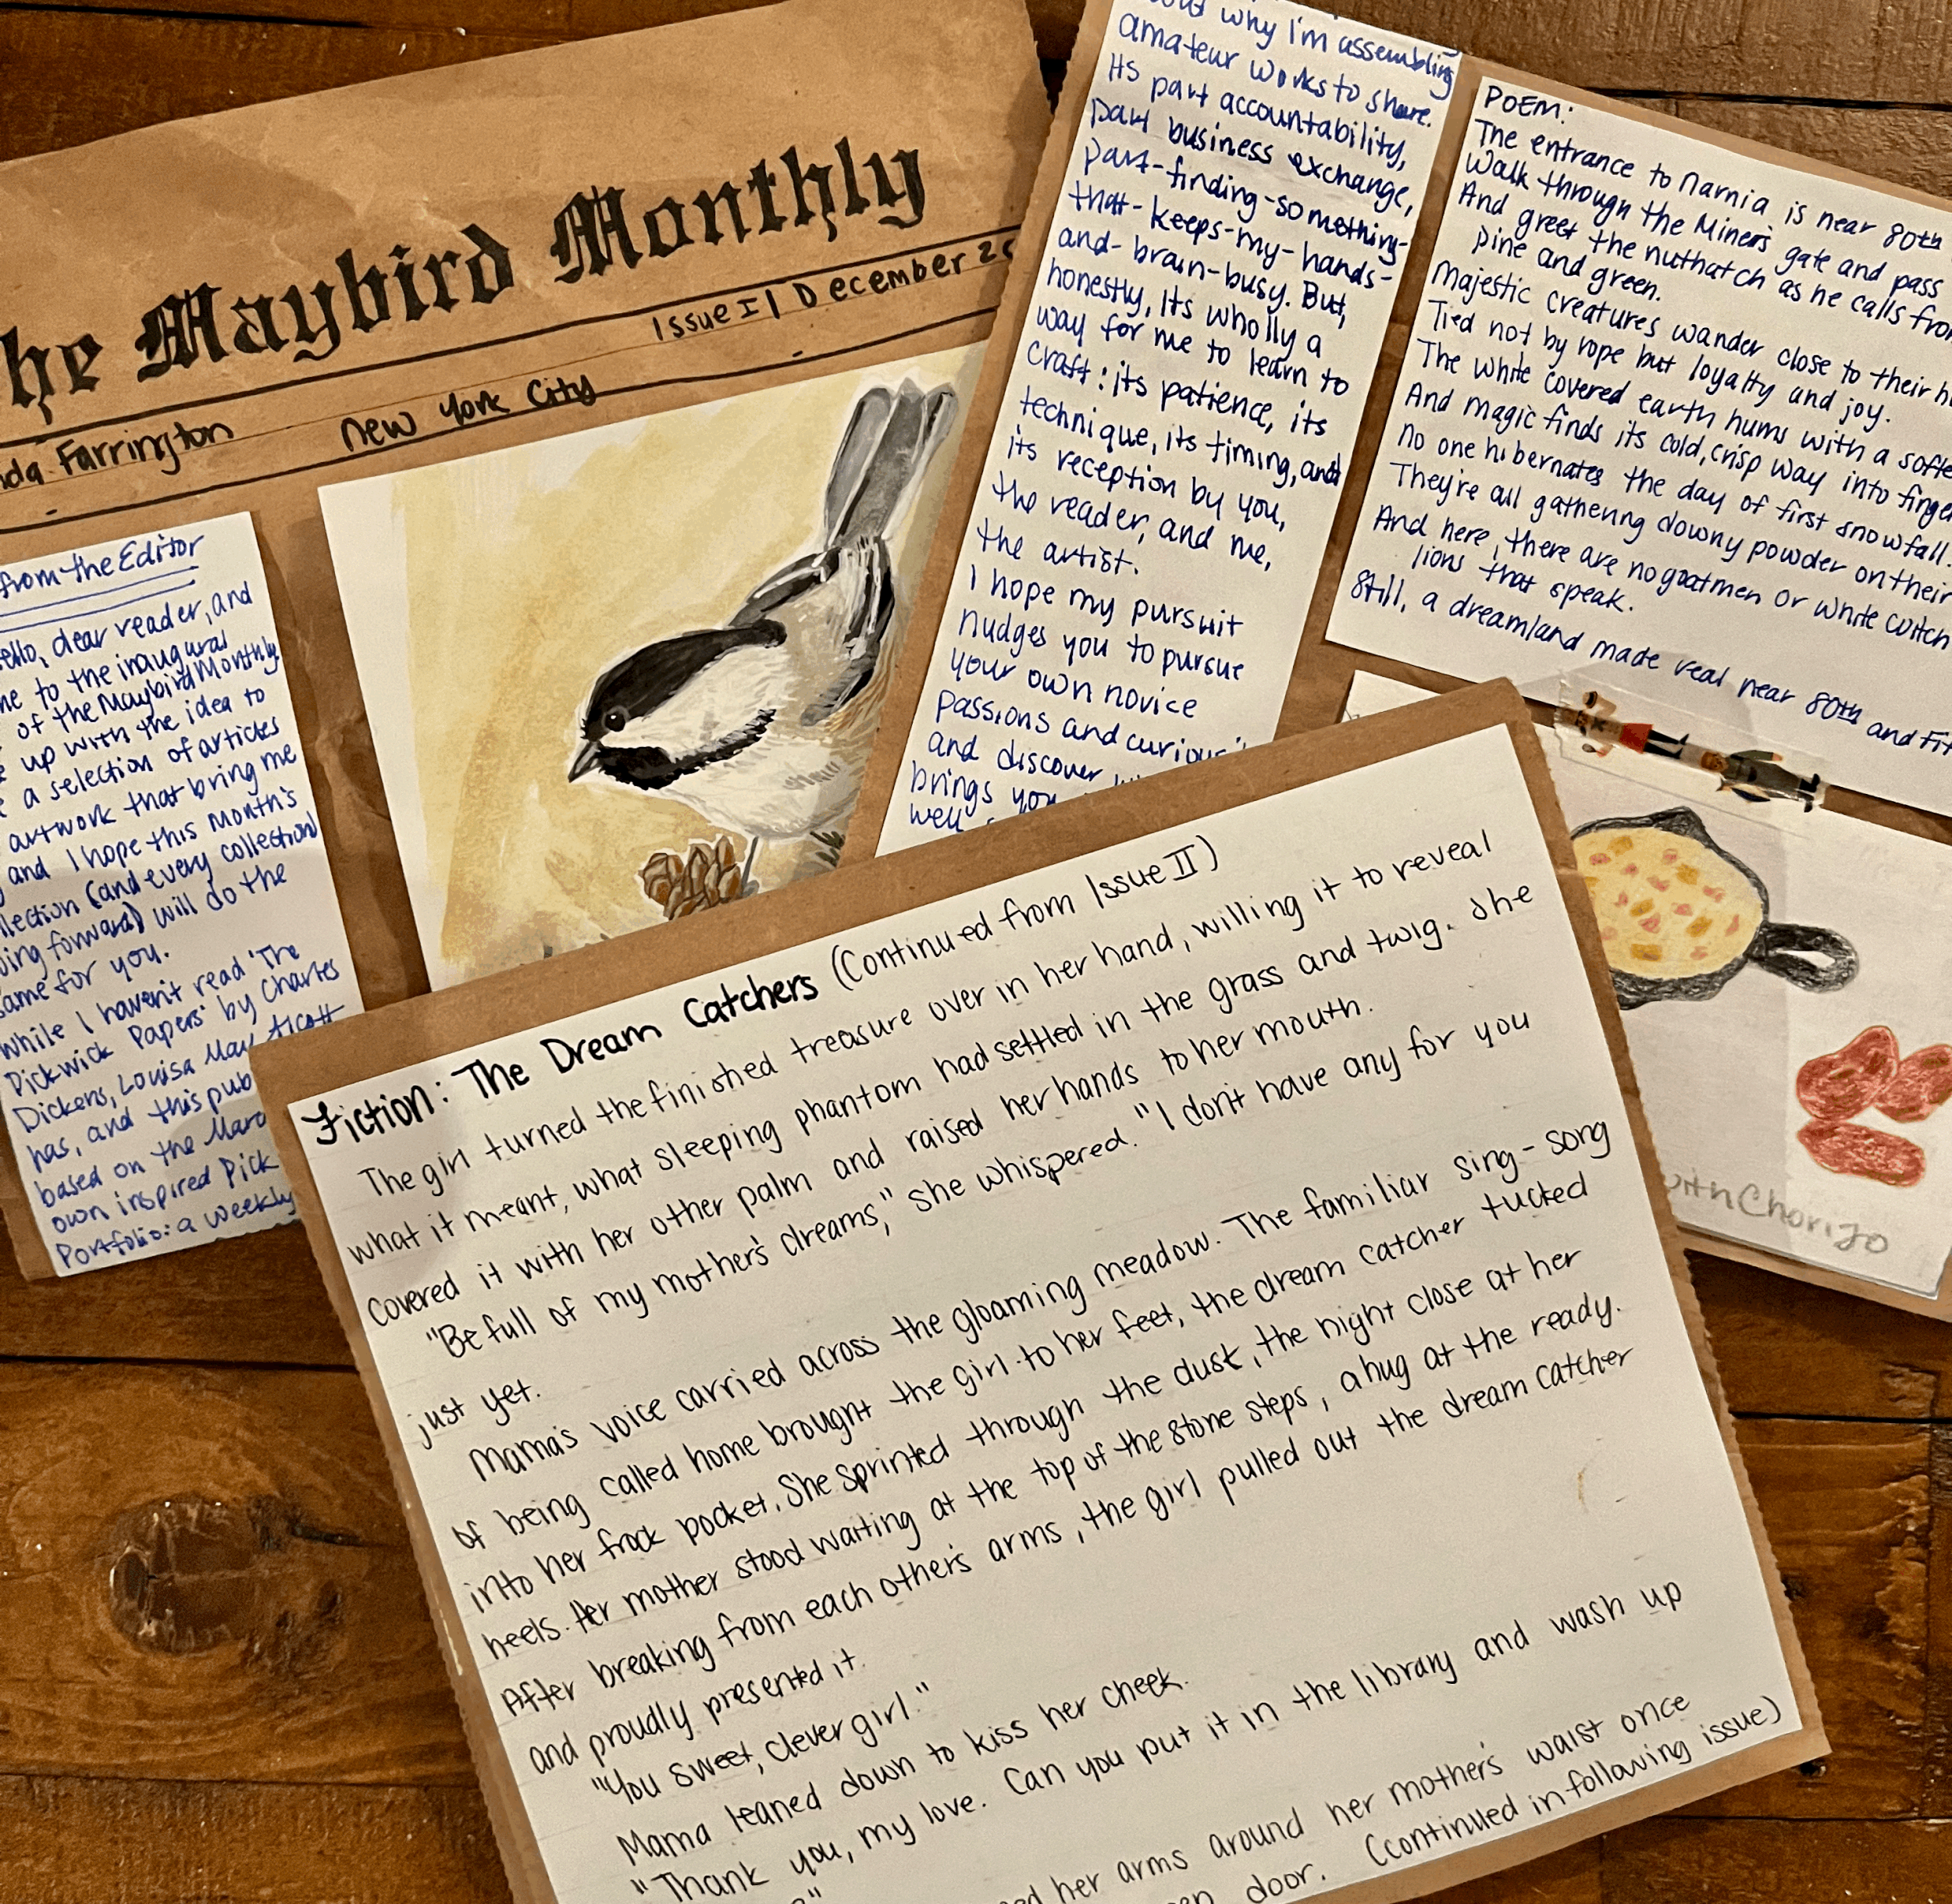 he Maybird Monthly
Issue I | December 20
nda Farrington
New York City
from the Editor
ello, dear reader, and
me to the inaugural
of the Maybird Monthly
up with the idea to
a selection of articles
artwork that bring me
and I hope this month's
llection (and every collection
oing forward) will do the
same for you.
While I haven't read 'The
Pickwick Papers' by Charles
Dickens, Louisa May Alcott
has, and this pub
based on the Marc
own inspired Pick
Portfolio: a weekly
out why I'm assembling
amateur works to share.
Its part accountability,
part business exchange,
part-finding-something-
that-keeps-my-hands-
and-brain-busy. But,
honestly, its wholly a
way for me to learn to
craft: its patience, its
technique, its timing, and
its reception by you,
the reader, and me,
the artist.
I hope my pursuit
nudges you to pursue
your own novice
passions and
and discover
brings you
well
POEM:
The entrance to Narnia is near 80th
Walk through the Miners gate and pass
And greet the nuthatch as he calls from
pine and green.
Majestic creatures wander close to their h
Tied not by rope but loyalty and joy.
The white covered earth hums with a softe
And magic finds its cold, crisp way into finger
No one hibernates the day of first snowfall.
They're all gathering downy powder on their
And here, there are no goatmen or white witch
lions that speak.
Still, a dreamland made real near 80th and Fif
with Chorizo
Fiction: The Dream Catchers (Continued from Issue II)
The girl turned the finished treasure over in her hand, willing it to reveal
what it meant, what sleeping phantom had settled in the grass and twig. She
covered it with her other palm and raised her hands to her mouth.
"Be full of my mother's dreams," she whispered. "I don't have any for you
just yet.
Mama's voice carried across the gloaming meadow. The familiar sing-song
of being called home brought the girl to her feet, the dream catcher tucked
into her frock pocket. She sprinted through the dust, the night close at her
heels. Her mother stood waiting at the top of the stone steps, a hug at the ready.
After breaking from each other's arms, the girl pulled out the dream catcher
and proudly presented it.
"You sweet, clever girl."
Mama leaned down to kiss her cheek.
"Thank you, my love. Can you put it in the library and wash up
ed her arms around her mother's waist once
door. (Continued in following issue)